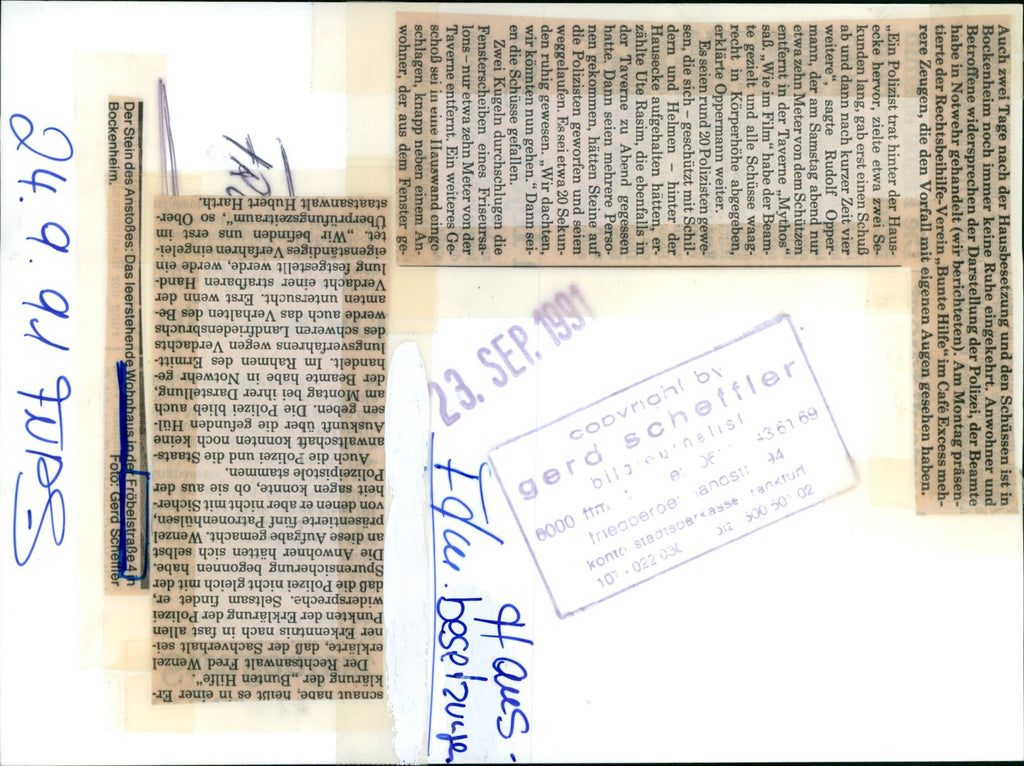 Auch zwei Tage nach der Hausbesetzung und den Schüssen ist in
Bockenheim noch immer keine Ruhe eingekehrt. Anwohner und
Betroffene widersprechen der Darstellung der Polizei, der Beamte
habe in Notwehr gehandelt (wir berichteten). Am Montag präsen-
tierte der Rechtsbeihilfe-Verein „Bunte Hilfe" im Café Excess meh-
rere Zeugen, die den Vorfall mit eigenen Augen gesehen haben.
„Ein Polizist trat hinter der Haus-
ecke hervor, zielte etwa zwei Se-
kunden lang, gab erst einen Schuß
ab und dann nach kurzer Zeit vier
weitere", sagte Rudolf Opper-
mann, der am Samstag abend nur
etwa zehn Meter von dem Schützen
entfernt in der Taverne „Mythos"
saß. „Wie im Film" habe der Beam-
te gezielt und alle Schüsse waag-
recht in Körperhöhe abgegeben,
erklärte Oppermann weiter.
Es seien rund 20 Polizisten gewe-
sen, die sich – geschützt mit Schil-
dern und Helmen – hinter der
Hausecke aufgehalten hätten, er-
zählte Ute Rasim, die ebenfalls in
der Taverne zu Abend gegessen
hatte. Dann seien mehrere Perso-
nen gekommen, hätten Steine auf
die Polizisten geworfen und seien
weggelaufen. Es sei etwa 20 Sekun-
den ruhig gewesen. „Wir dachten,
wir könnten nun gehen." Dann sei-
en die Schüsse gefallen.
Zwei Kugeln durchschlugen die
Fensterscheiben eines Friseursa-
lons – nur etwa zehn Meter von der
Taverne entfernt. Ein weiteres Ge-
schoß sei in eine Hauswand einge-
schlagen, knapp neben einem An-
wohner, der aus dem Fenster ge-
schaut habe, heißt es in einer Er-
klärung der „Bunten Hilfe".
Der Rechtsanwalt Fred Wenzel
erklärte, daß der Sachverhalt sei-
ner Erkenntnis nach in fast allen
Punkten der Erklärung der Polizei
widerspreche. Seltsam findet er,
daß die Polizei nicht gleich mit der
Spurensicherung begonnen habe.
Die Anwohner hätten sich selbst
an diese Aufgabe gemacht. Wenzel
präsentierte fünf Patronenhülsen,
von denen er aber nicht mit Sicher-
heit sagen konnte, ob sie aus der
Polizeipistole stammen.
Auch die Polizei und die Staats-
anwaltschaft konnten noch keine
Auskunft über die gefunden Hül-
sen geben. Die Polizei blieb auch
am Montag bei ihrer Darstellung,
der Beamte habe in Notwehr ge-
handelt. Im Rahmen des Ermitt-
lungsverfahrens wegen Verdachts
des schweren Landfriedensbruchs
werde auch das Verhalten des Be-
amten untersucht. Erst wenn der
Verdacht einer strafbaren Hand-
lung festgestellt werde, werde ein
eigenständiges Verfahren eingelei-
tet. „Wir befinden uns erst im
Überprüfungszeitraum", so Ober-
staatsanwalt Hubert Harth.
Der Stein des Anstoßes: Das leerstehende Wohnhaus in der Fröbelstraße 4 in
Bockenheim. Foto: Gerd Scheffler
24. 9. 91 FNP
23. SEP. 1991
copyright by
gerd scheffler
6000 ffm.
konto stadtsparkasse frankfurt
Haus-
besetzungen